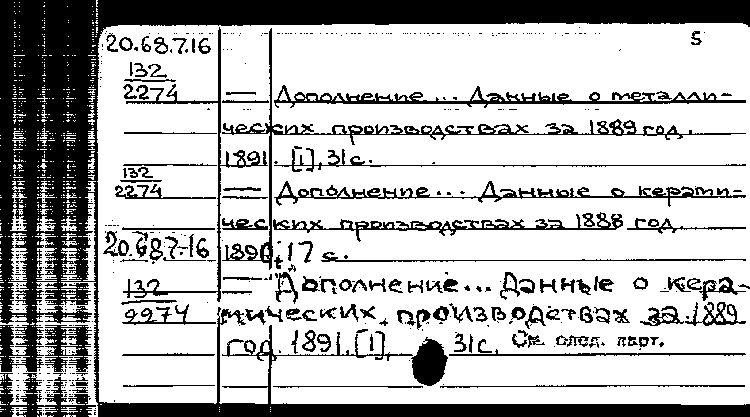 20.68.7.16 5
132
2274 — Дополнение... Данные о металли-
ческих производствах за 1889 год.
1891. [1], 31 с.
132
2274 — Дополнение... Данные о керами-
ческих производствах за 1888 год.
20.68.7.16 1890, 17 с.
132 — Дополнение... Данные о кера-
2274 мических производствах за 1889
год. 1891. [1], 31 с. См. след. карт.